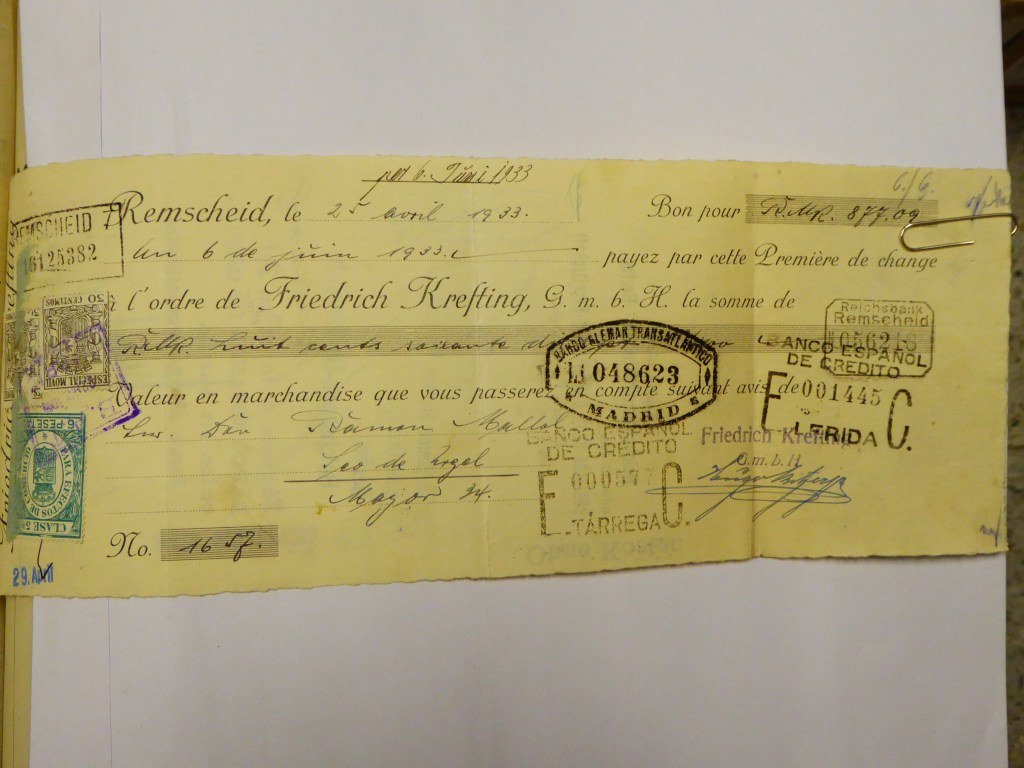 per 6. Juni 1933
Remscheid, le 25 avril 1933.
Bon pour RMk. 877.09
6./6.
REMSCHEID
16125382
An 6 de juin 1933.
payez par cette Première de change
à l'ordre de Friedrich Krefting, G. m. b. H. la somme de
RMk. huit cents soixante
Valeur en marchandise que vous passerez en compte suivant avis de
Don Ramon Mallol
Seo de Urgel
Mayor 34.
No. 1657.
30 CENTIMOS
ESPECIAL MOVIL
6 PESETAS
PARA EFECTOS DE
CLASE 5ª
29. April
BANCO ALEMAN TRANSATLANTICO
LI 048623
MADRID
Reichsbank
Remscheid
BANCO ESPAÑOL
DE CREDITO
E 001445 C.
LERIDA
BANCO ESPAÑOL
DE CRÉDITO
E 000577 C.
TÁRREGA
Friedrich Krefting
G.m.b.H.